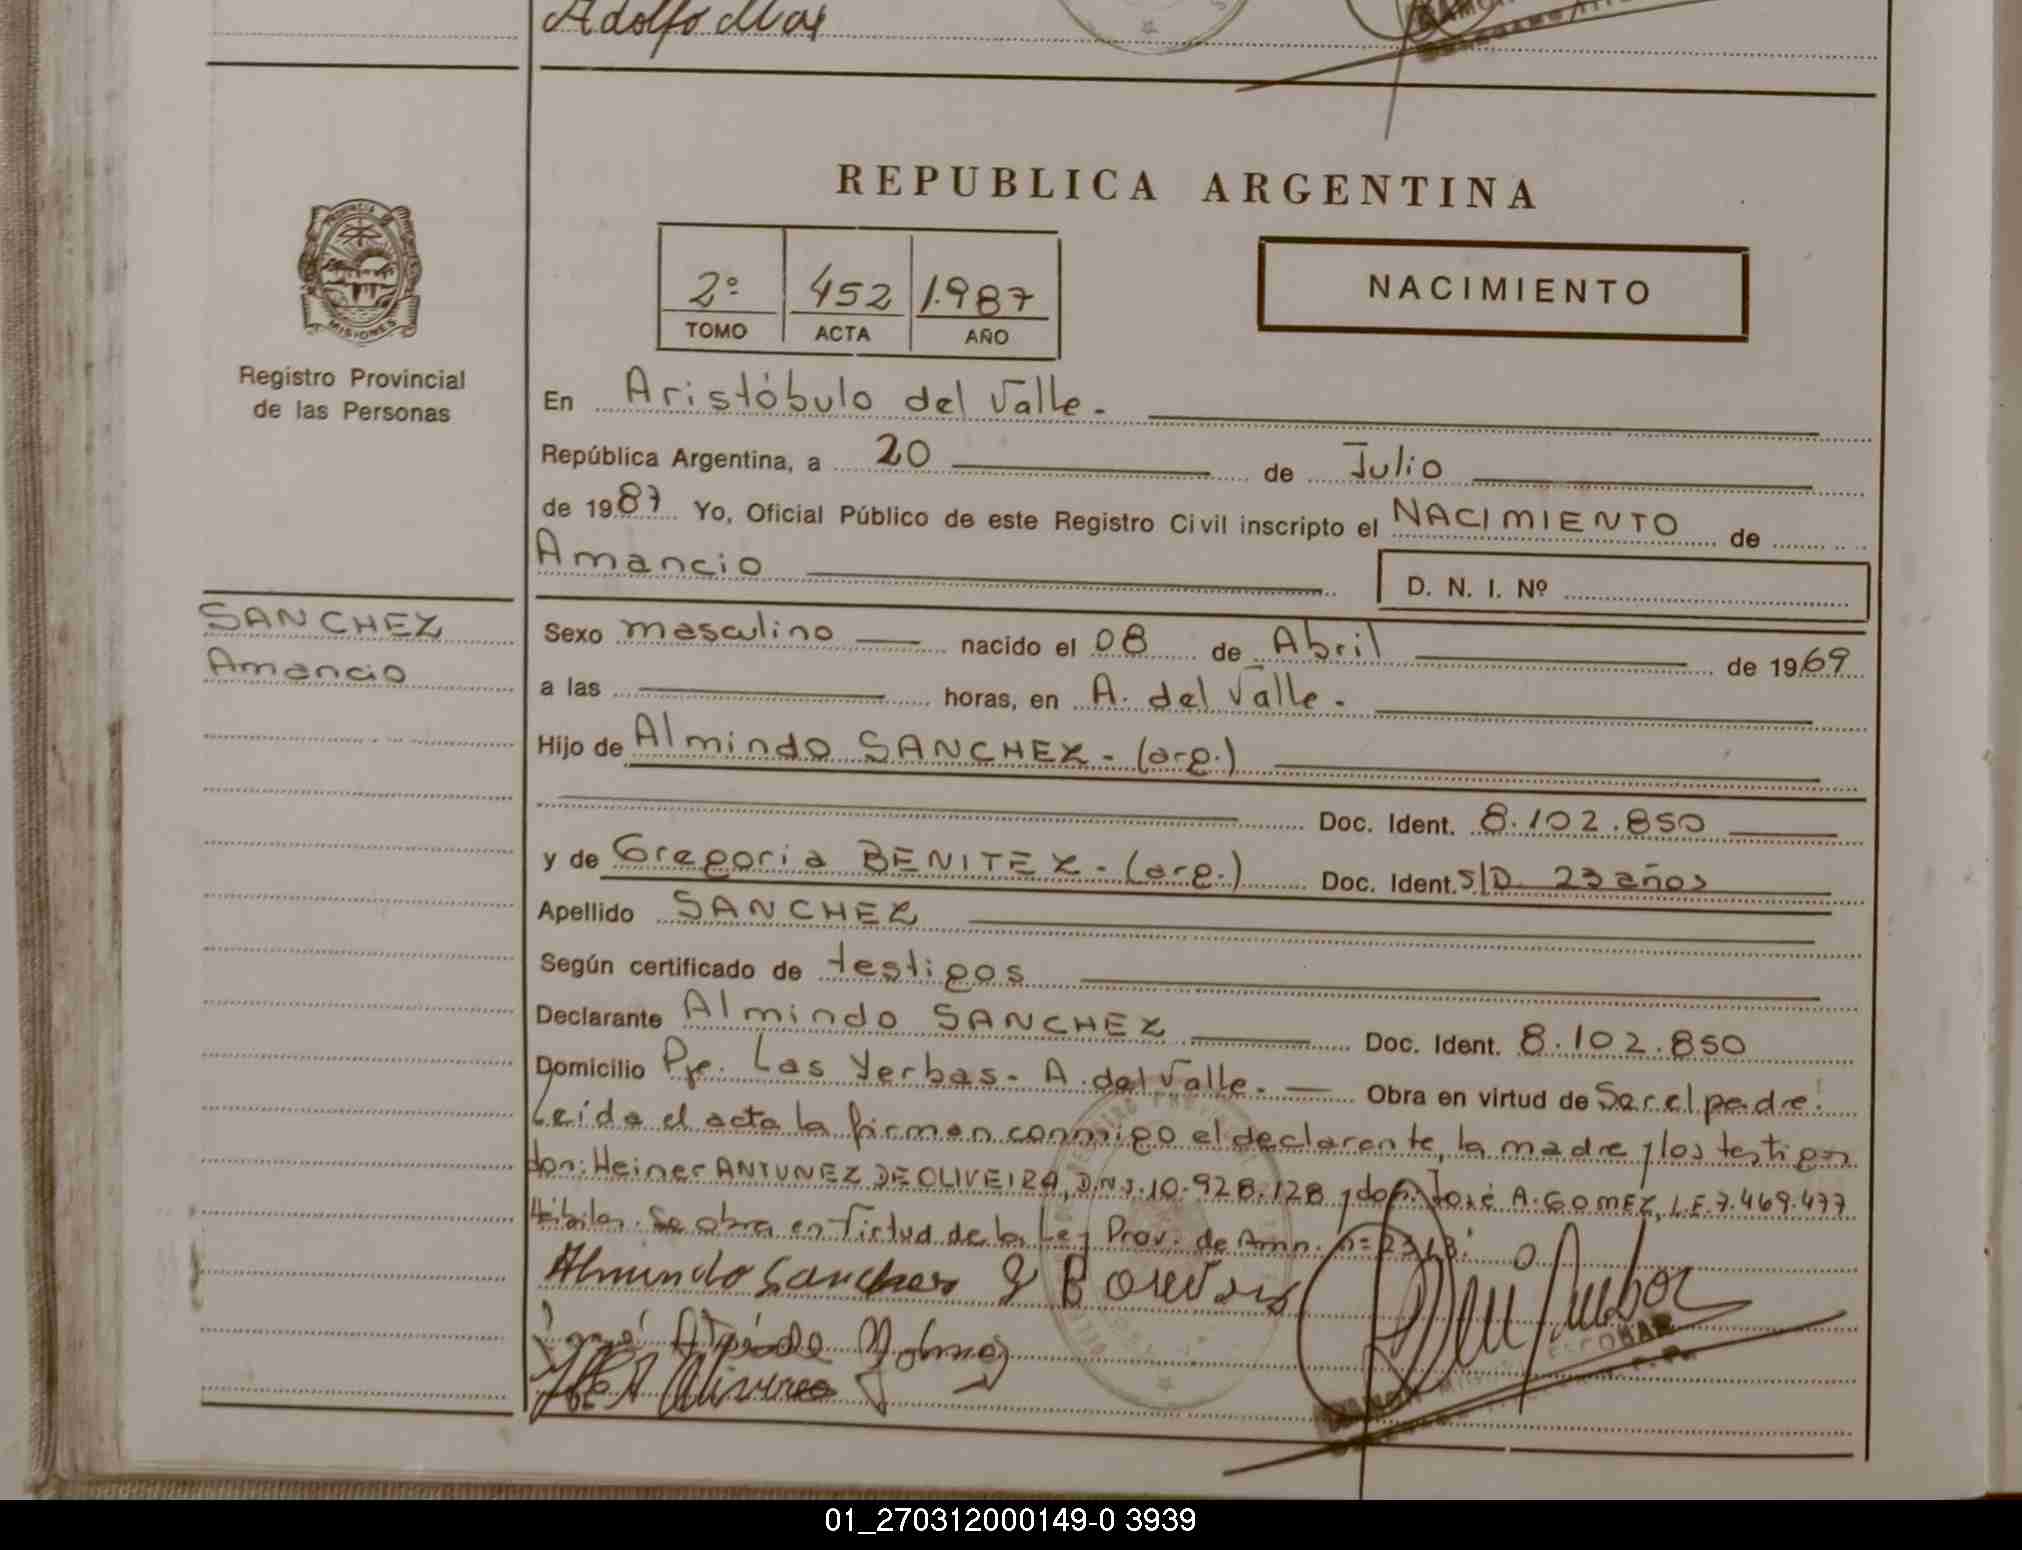 Adolfo Mas
REPUBLICA ARGENTINA
PROVINCIA DE MISIONES
2º 452 1.987
TOMO ACTA AÑO
NACIMIENTO
Registro Provincial
de las Personas
En Aristóbulo del Valle.
República Argentina, a 20 de Julio
de 1987 Yo, Oficial Público de este Registro Civil inscripto el NACIMIENTO de
Amancio
D. N. I. Nº
SANCHEZ
Amancio
Sexo masculino nacido el 08 de Abril de 1969
a las horas, en A. del Valle.
Hijo de Almindo SANCHEZ - (arg.)
Doc. Ident. 8.102.850
y de Gregoria BENITEZ - (arg.) Doc. Ident. S/D 23 años
Apellido SANCHEZ
Según certificado de testigos
Declarante Almindo SANCHEZ Doc. Ident. 8.102.850
Domicilio Pje. Las Yerbas - A. del Valle. Obra en virtud de Ser el padre.
Leída el acta la firman conmigo el declarante, la madre y los testigos
don: Heiner ANTUNEZ DE OLIVEIRA, D.N.I. 10.928.128 y don: José A. GOMEZ, L.E. 7.469.477
Hábiles. Se obra en Virtud de la Ley Prov. de Amn. nº
Almindo Sanches
Olivera
01_270312000149-0 3939